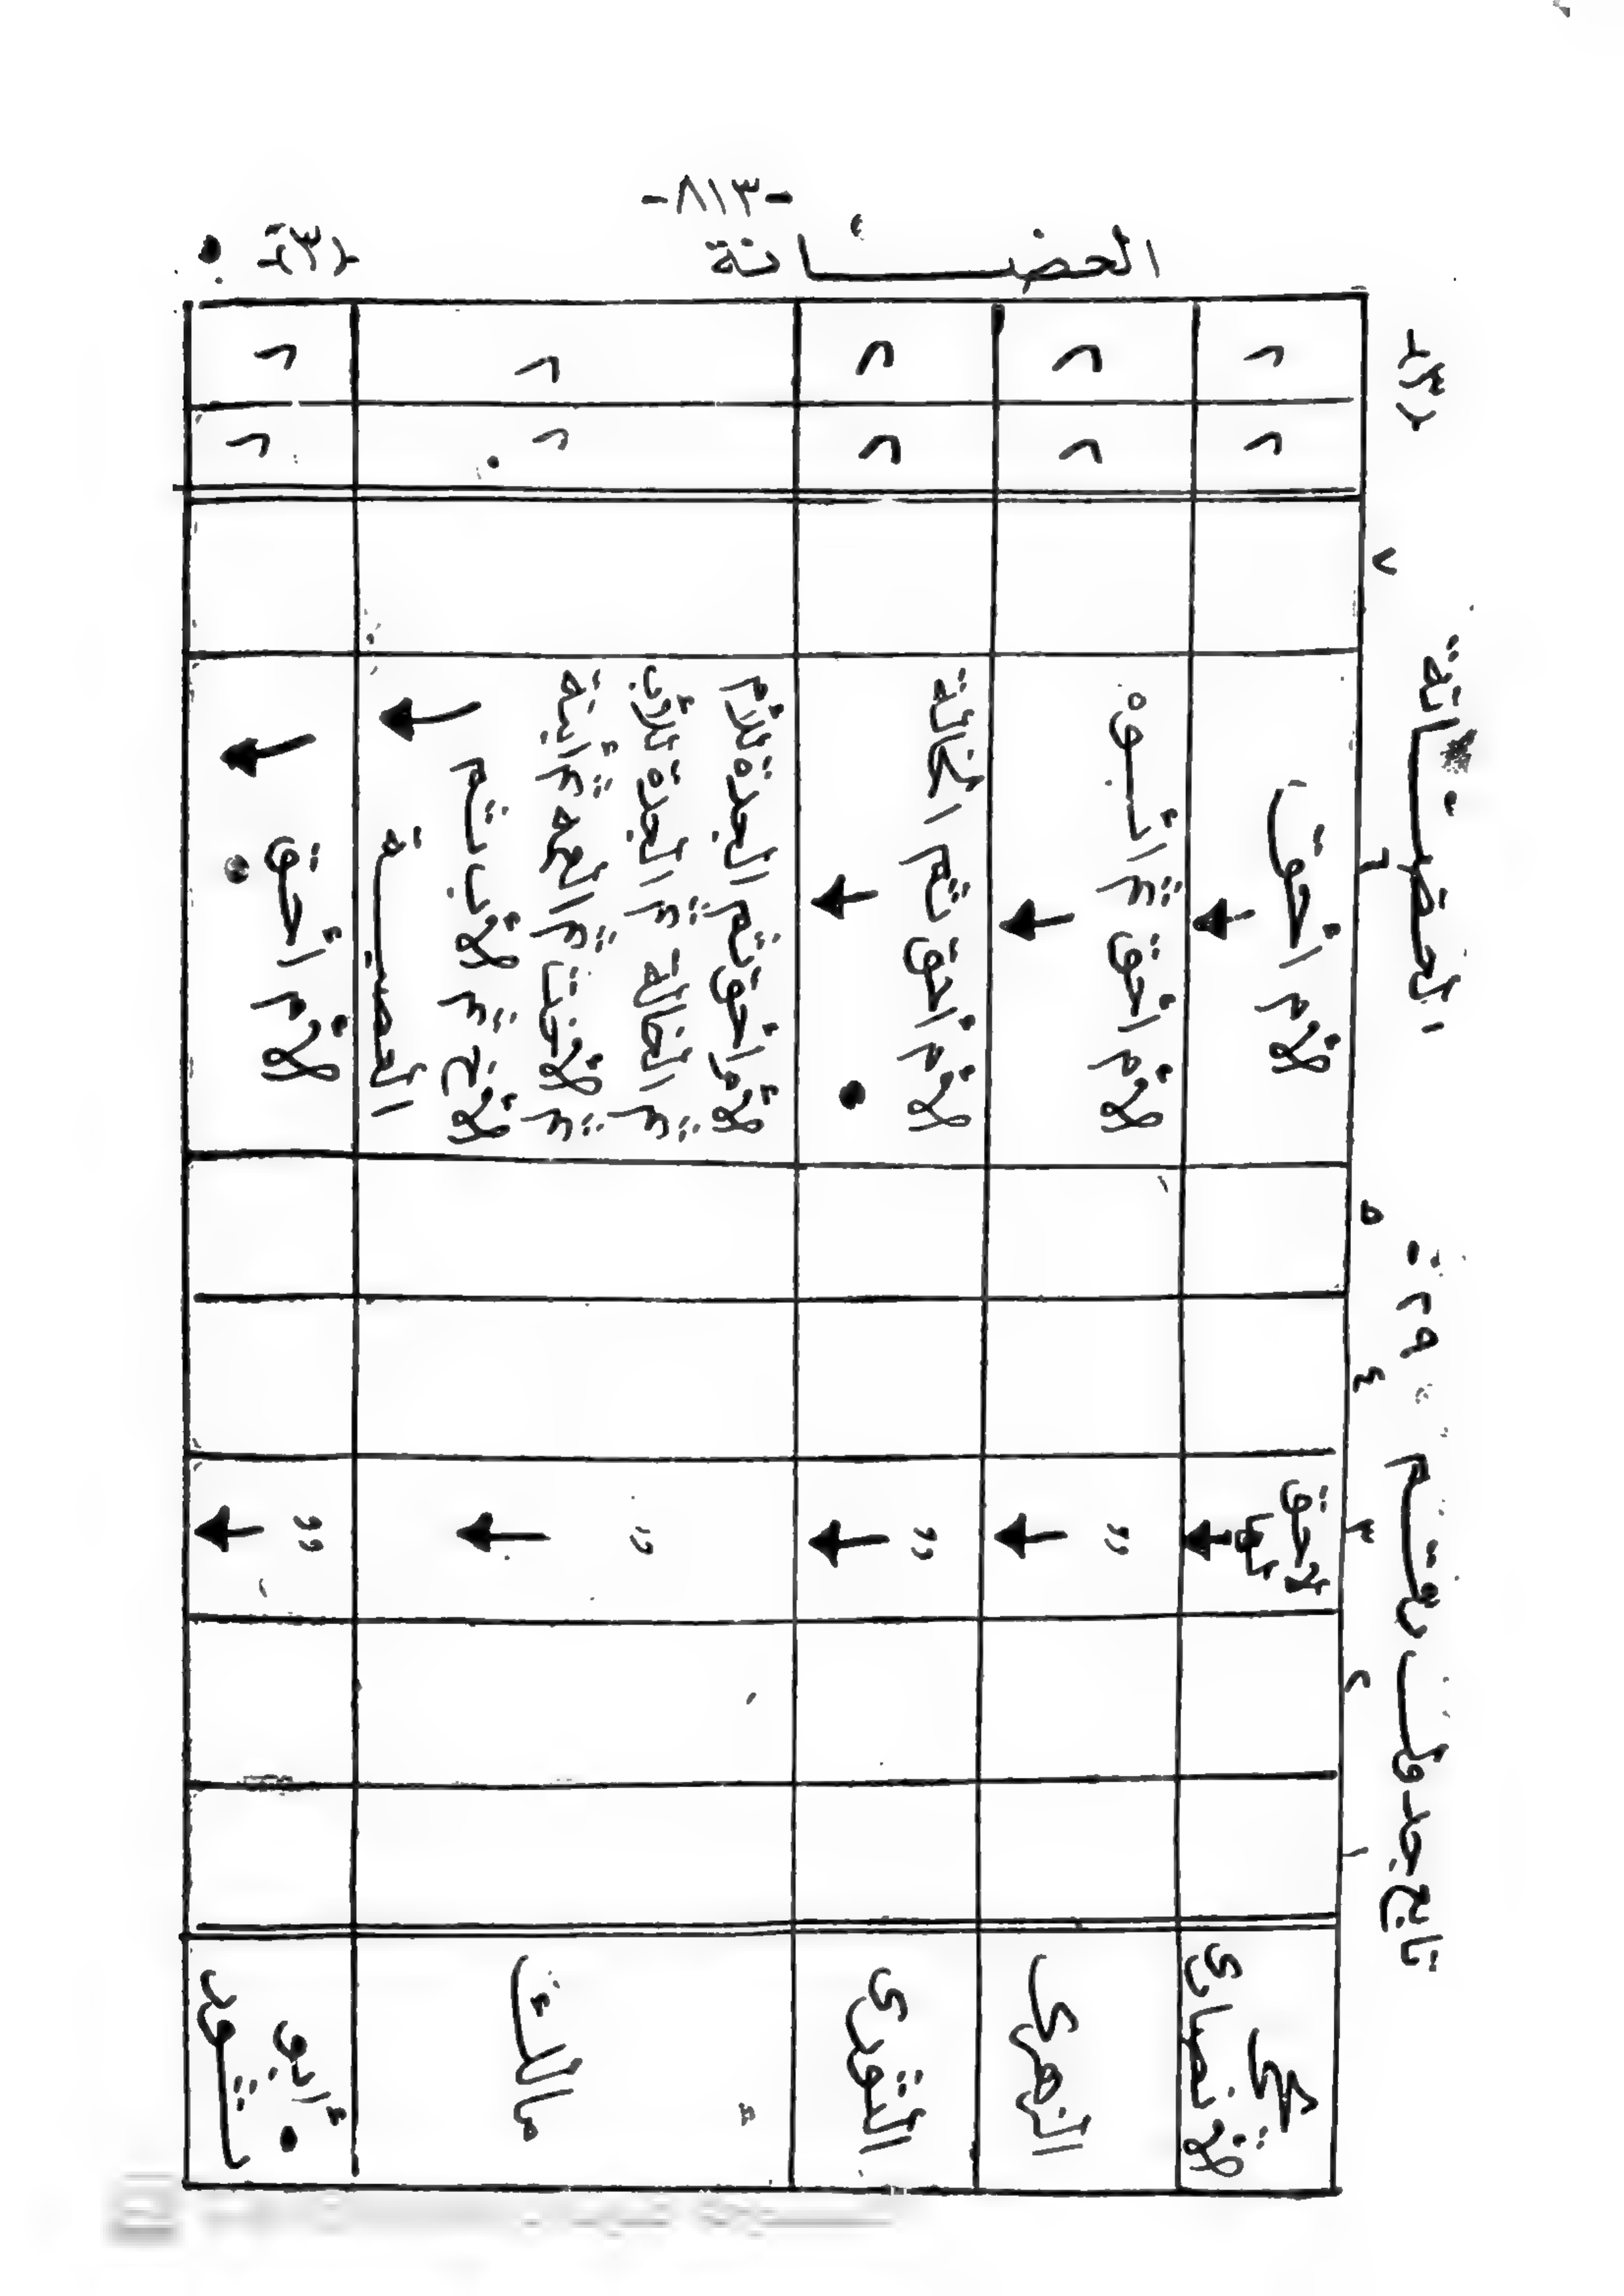 -٣١٨-
الحضانة
(٣)
تابع جدول رقم ٢٩ :- الحضانة
١
٢
٣
٤
٥
٦
٧
يحيى الأنصارى
أحق بها
الأم أحق
٢
٢
الزهرى
"
الأم أحق ثم أنه
٢
٢
الثورى
"
الأم أحق ثم الخالة
٢
٢
مالك
"
الأم أحق ثم الجدة للأم
ثم الخالة ثم الجدة للأب
ثم الأخت ثم العمة ثم ابنة
الأخ ثم للأب ثم
العصبة
٢
٢
أبو ثور
"
الأم أحق
٢
٢